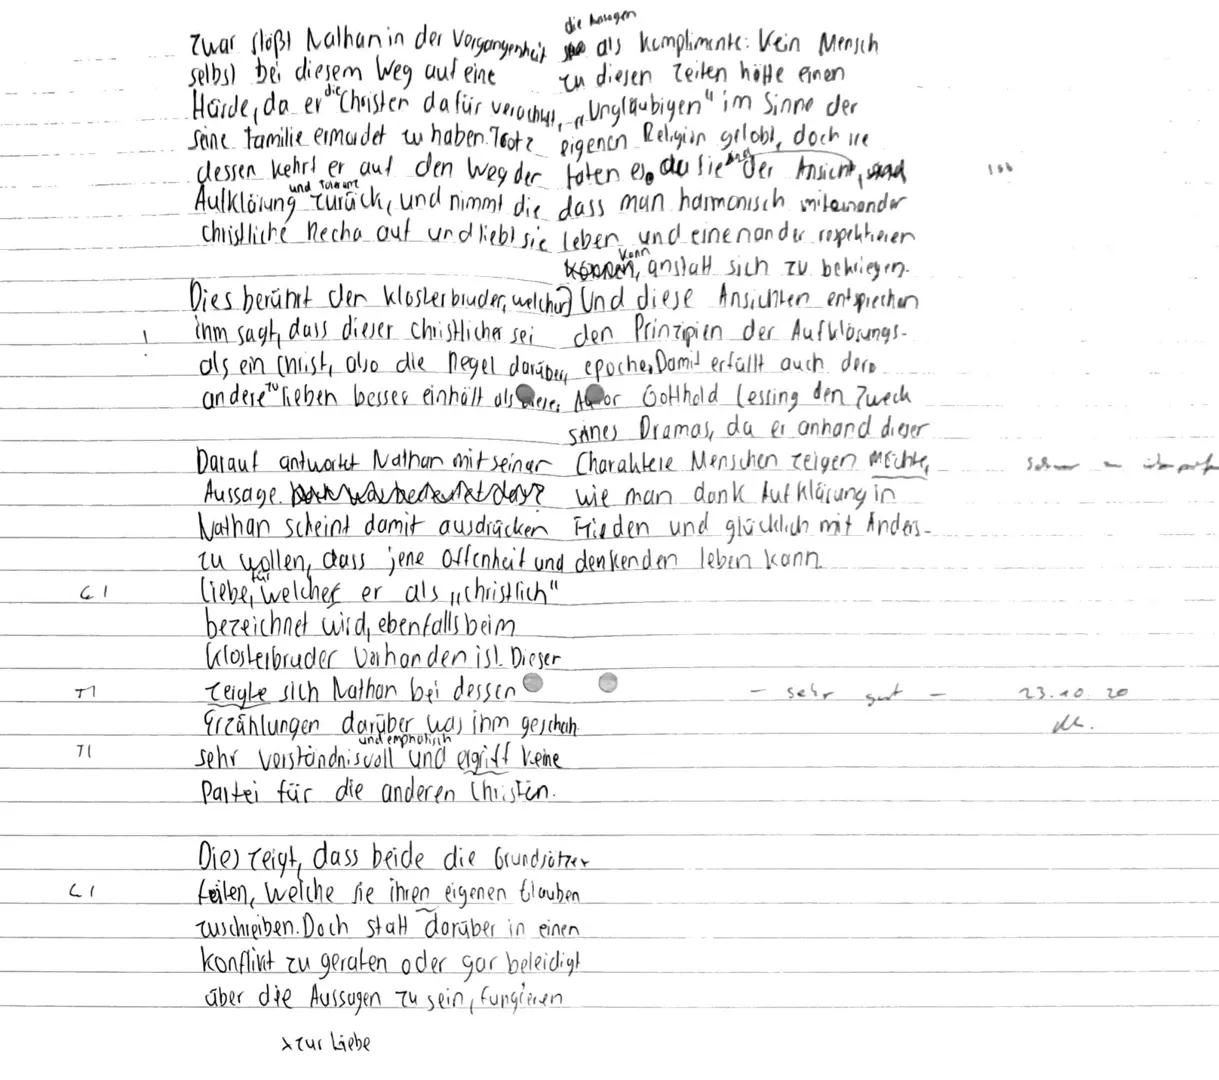 Zwar stößt Nathan in der Vergangenheit
selbst bei diesem Weg auf eine
Hürde, da er die Christen dafür verachtet,
seine Familie ermordet zu haben. Trotz
dessen kehrt er auf den Weg der
Aufklärung und Toleranz zurück, und nimmt die
christliche Recha auf und liebt sie
Dies berührt den Klosterbruder, welcher
ihm sagt, dass dieser christlicher sei
!
als ein Christ, also die Regel darüber,
andere zu lieben besser einhält als diese.
Darauf antwortet Nathan mit seiner
Aussage.
Nathan scheint damit ausdrücken
zu wollen, dass jene Offenheit und
Liebe, für welche er als „christlich"
G I
bezeichnet wird, ebenfalls beim
Klosterbruder vorhanden ist. Dieser
zeigte sich Nathan bei dessen
T I
Erzählungen darüber was ihm geschah
sehr verständnisvoll und emphatisch und ergriff keine
T I
Partei für die anderen Christen.
Dies zeigt, dass beide die Grundsätze
teilen, welche sie ihren eigenen Glauben
G I
zuschreiben. Doch statt darüber in einen
Konflikt zu geraten oder gar beleidigt
über die Aussagen zu sein, fungieren
x zur Liebe
die Aussagen als Komplimente: Kein Mensch
zu diesen Zeiten hätte einen
„Ungläubigen" im Sinne der
eigenen Religion gelobt, doch sie
taten es, da sie der Ansicht,
dass man harmonisch miteinander
leben und einenander respektieren
kann, anstatt sich zu bekriegen.
Und diese Ansichten entsprechen
den Prinzipien der Aufklärungs-
epoche. Damit erfüllt auch der
Autor Gotthold Lessing den Zweck
seines Dramas, da er anhand dieser
Charaktere Menschen zeigen möchte,
wie man dank Aufklärung in
Frieden und glücklich mit Anders-
denkenden leben kann.
- sehr gut -
23.10.20